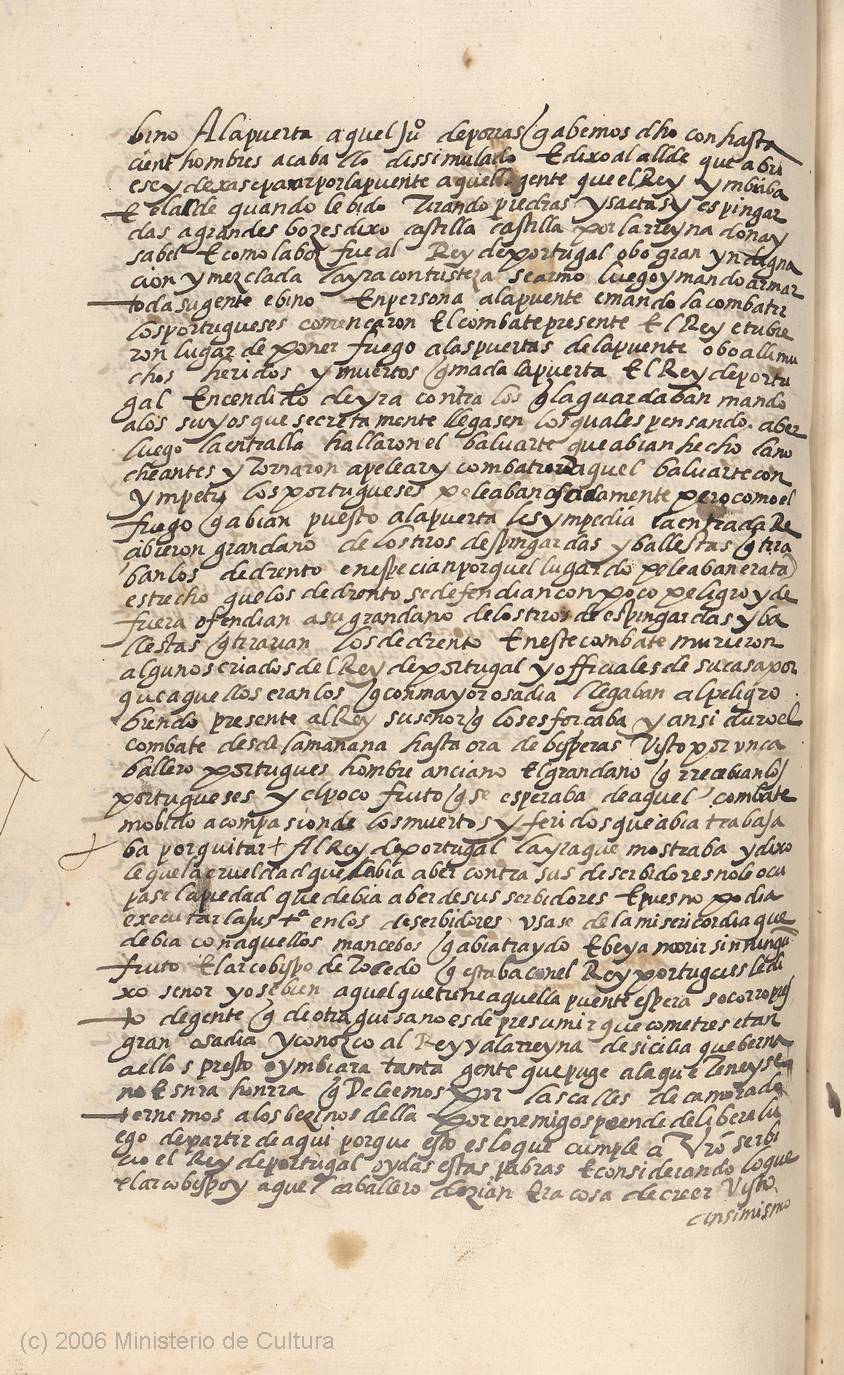 bino A la puerta aquel Juº de porras q abemos dho con hasta
cient hombres a caballo dissimulado E dixo al allde que abri
ese y dexase pasar por la puente aquella gente que el Rey ymbiaba
E el alde quando le bido Tirando piedras y saetas y espingar
das a grandes bozes dixo castilla castilla por la rreyna dona y
sabel E como la boz fue al Rey de portugal obo gran yndigna
cion y mezclada la yra con tristeza se armo luego y mando armar
toda su gente e bino En persona a la puente e mando la combatir
los portugueses començaron El combate presente El Rey e tubie
ron lugar de poner fuego a las puertas de la puente obo alli mu
chos heridos y muertos qmada la puerta El Rey de portu
gal Encendido de yra contra los q la guardaban mando
a los suyos que secretamente llegasen los quales pensando aber
luego la entrada hallaron el baluarte que abian hecho
y Tornaron a pelear y combatir aquel baluarte con
ympetu los portugueses peleaban osadamente pero como el
fuego q abian puesto a la puerta les ympedia la entrada Re
cibieron gran dano de los tiros despingardas y ballestas q tira
ban los de drento en especial porque el lugar do peleaban era tã
estrecho que los de drento se defendian con poco peligro y de
fuera ofendian a su gran dano de los tiros de espingardas y ba
llestas q tirauan los de drento En este combate murieron
algunos criados del Rey de portugal y officiales de su casa por
que aquellos eran los q con mayor osadia llegaban al peligro
biendo presente al Rey su senor q los esforcaba y ansi duro el
combate desde la manana hasta ora de bisperas Visto por vn ca
ballero portugues hombre anciano El gran dano q rrecebian los
portugueses y el poco fruto q se esperaba de aquel combate
mobido a compasion de los muertos y feridos que abia trabaja
ba por quitar Al Rey de portugal la yra que mostraba y dixo
le que la crueldad que debia aber contra sus deserbidores no le ocu
pase la piedad que debia aber de sus serbidores E pues no podia
executar la jus+ª en los deserbidores vsase de la misericordia que
debia con aquellos mancebos q abia traydo E beya morir sin ningũ
fruto El arcobispo de Toledo q estaba con el Rey portugues le di
xo senor yo se bien aquel que tiene aquella puente espera socorro pres
to de gente q de otra guisa no es de presumir que cometiese tan
gran osadia y conozco al Rey y a la rreyna de sicilia que
a ellos presto o ymbiara tanta gente que
no es nra honrra q Peleemos por las calles de camora
tornemos a los bezinos della por enemigos por ende delibera lu
ego de partir de aqui porque esto es lo que cumple a Vrō serbi
cio el Rey de portugal oydas estas pabras E considerando lo que
el arcobispo y aquel caballero dezian Era cosa de creer Visto
ansimismo
(c) 2006 Ministerio de Cultura